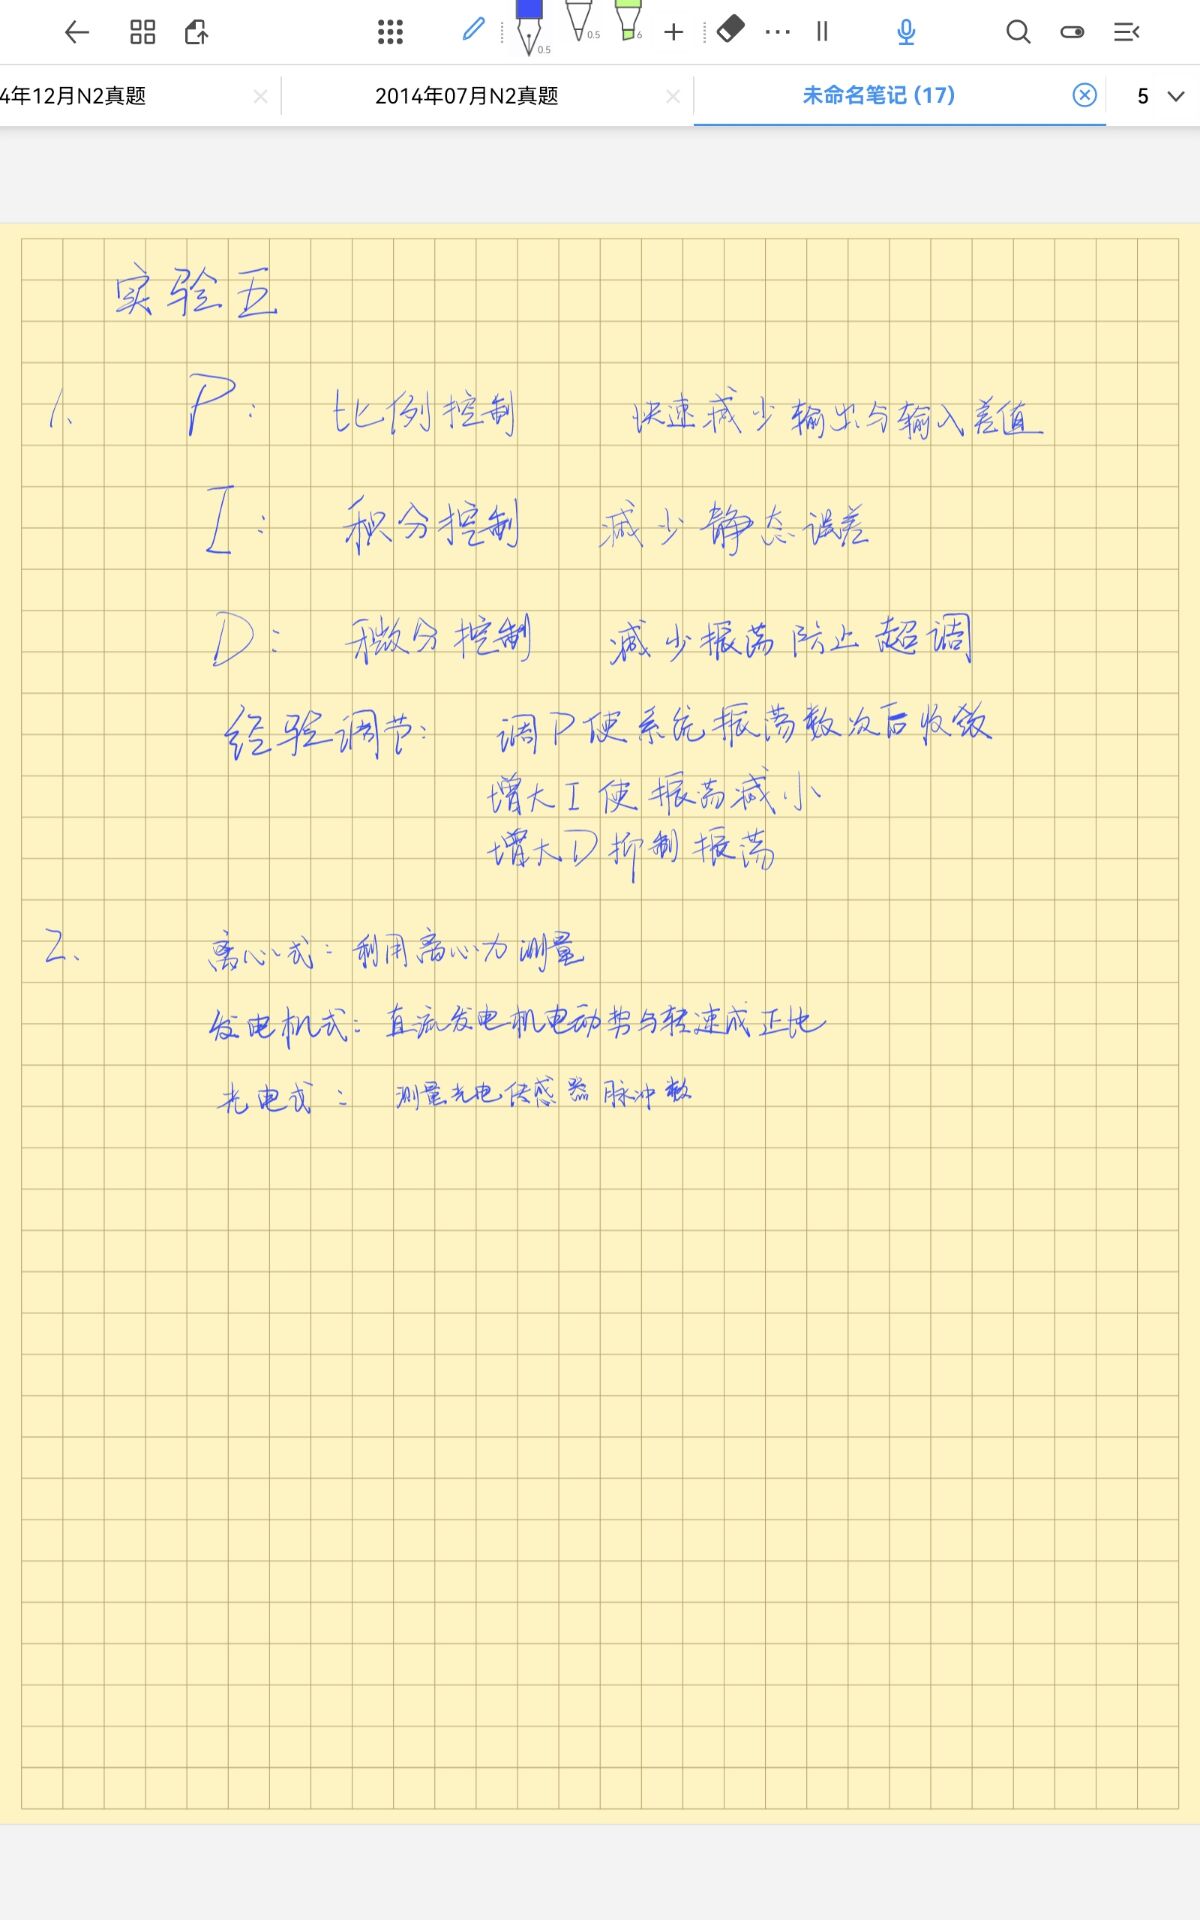 0.5
0.5
6
4年12月N2真题
2014年07月N2真题
未命名笔记 (17)
5
实验五
1. P: 比例控制 快速减少输出与输入差值
I: 积分控制 减少静态误差
D: 微分控制 减少振荡防止超调
经验调节: 调P使系统振荡数次后收敛
增大I使振荡减小
增大D抑制振荡
2. 离心式: 利用离心力测量
发电机式: 直流发电机电动势与转速成正比
光电式: 测量光电传感器脉冲数